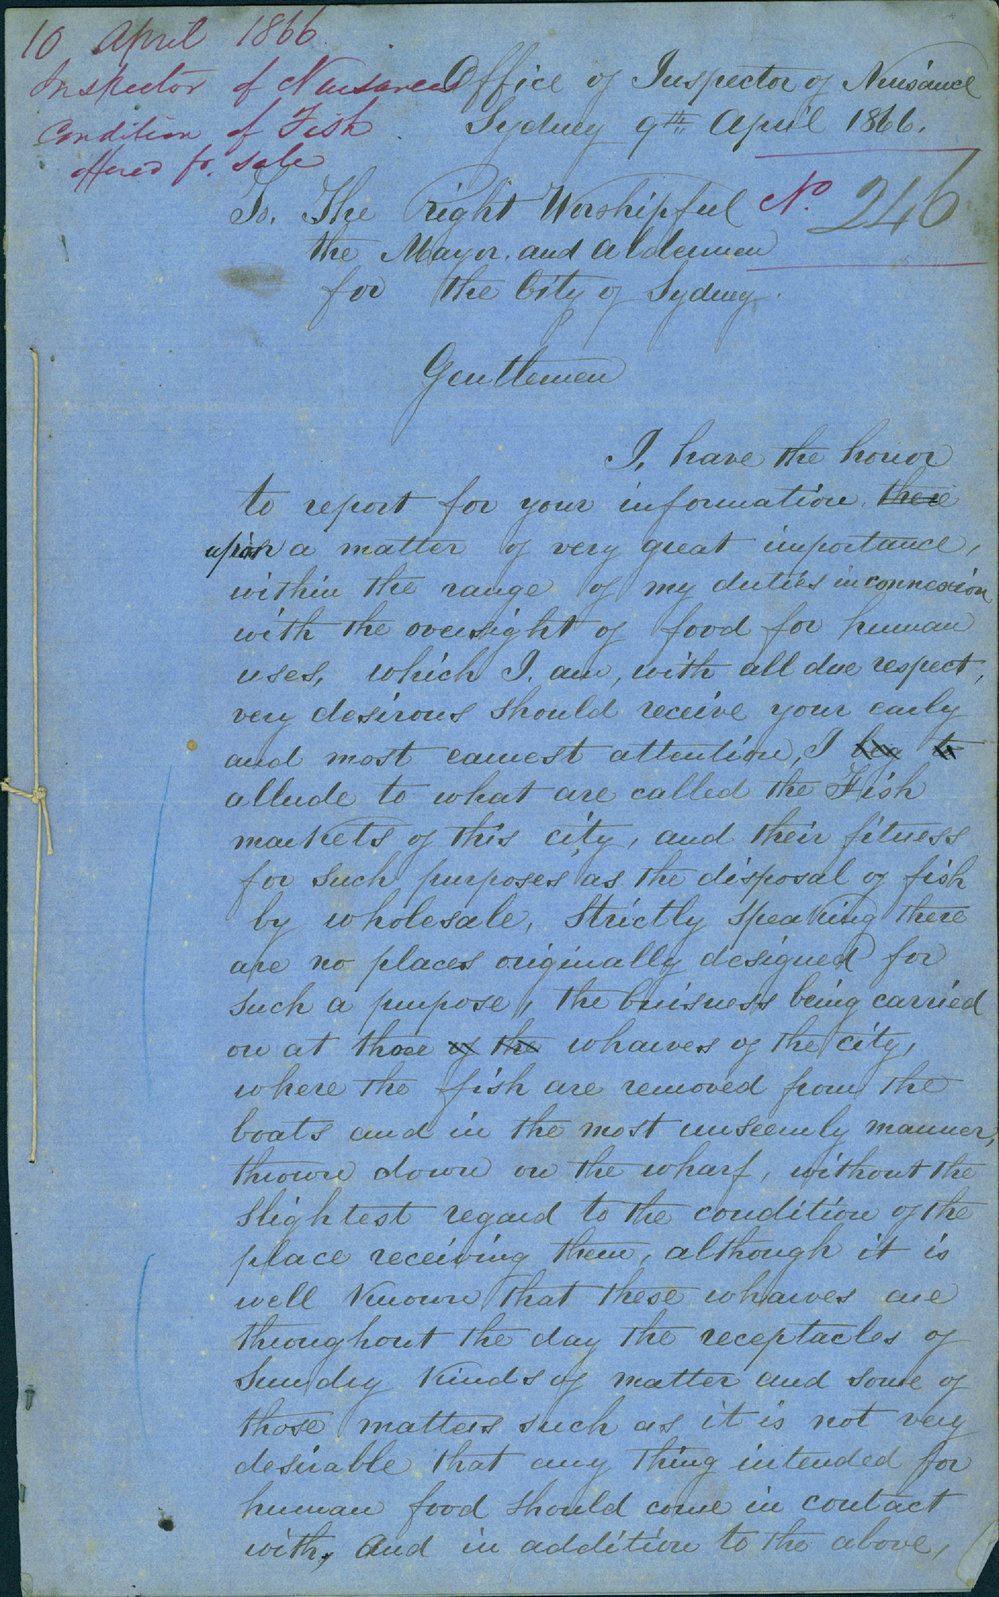 10 April 1866.
Inspector of Nuisances
Condition of Fish
offered for sale
Office of Inspector of Nuisance
Sydney 9th April 1866.
No. 246
To. The right Worshipful
the Mayor. and Aldermen
for the City of Sydney.
Gentlemen
I, have the honor
to report for your information. there
upon a matter of very great importance,
within the range of my duties in connexion
with the oversight of food for human
uses, which I. am, with all due respect,
very desirous should receive your early
and most earnest attention, I beg to
allude to what are called the Fish
markets of this city, and their fitness
for such purposes as the disposal of fish
by wholesale, Strictly speaking there
are no places originally designed for
such a purpose, the buisness being carried
on at those of the wharves of the city,
where the fish are removed from the
boats and in the most unseemly manner,
thrown down on the wharf, without the
slightest regard to the condition of the
place receiving them, although it is
well known that these wharves are
throughout the day the receptacles of
Sundry kinds of matter and some of
those matters such as it is not very
desirable that any thing intended for
human food should come in contact
with, and in addition to the above,